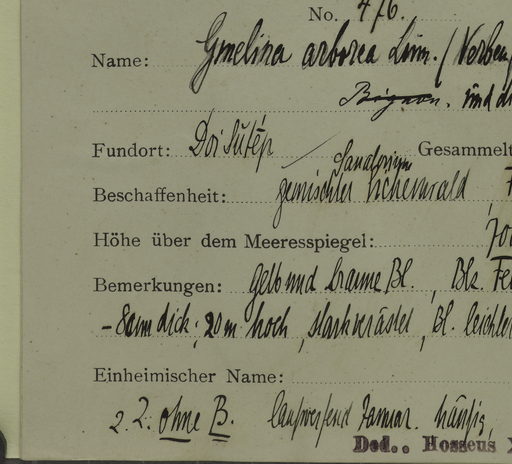 No. 476.
Name: Gmelina arborea Linn. (Verben
Bignon. und
Fundort: Doi Sutép Gesammelt
Sanatorium
Beschaffenheit: gemischter Hochwald
Höhe über dem Meeresspiegel: 70
Bemerkungen: Gelb und braune Bl., Blz. Fe
- 80cm dick; 20m hoch, stark verästet, Bl. leicht
Einheimischer Name:
z. Z. ohne B. laubwerfend Januar. häufig,
Ded.. Hosseus